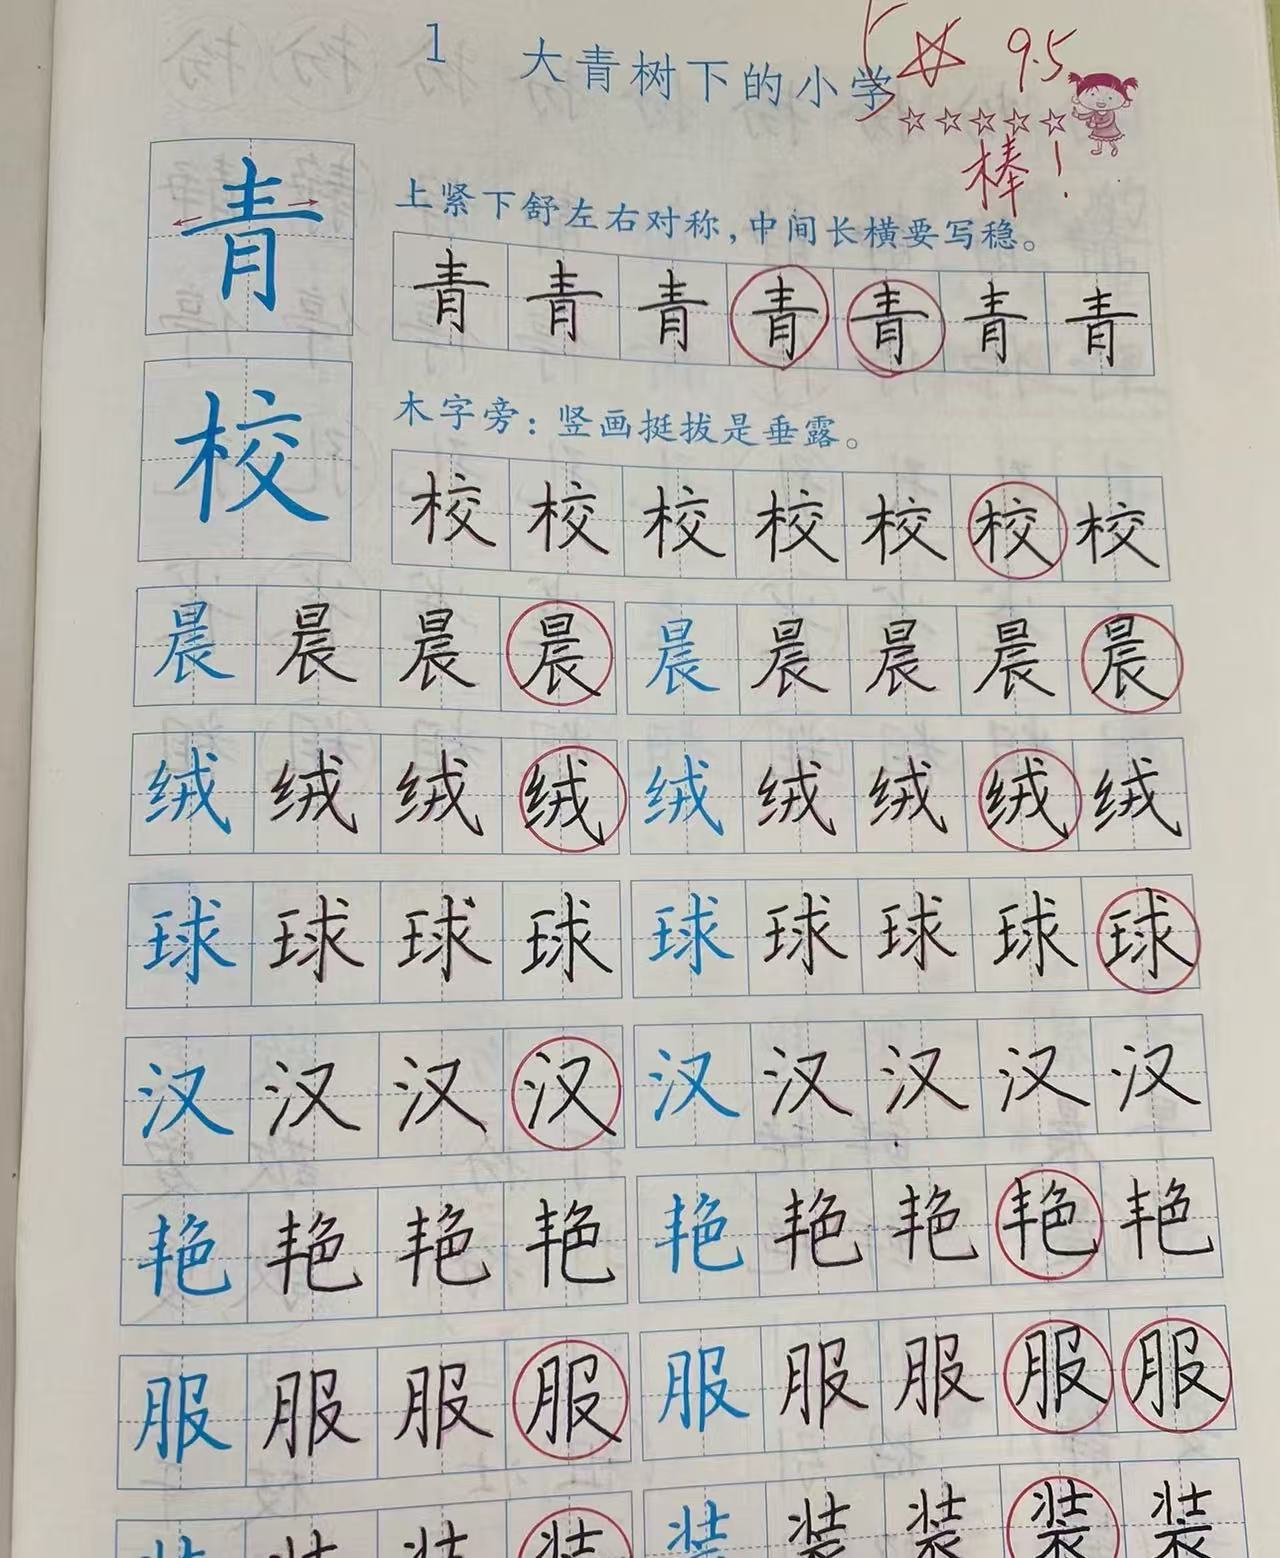 1 大青树下的小学 5☆ 9.5
☆☆☆☆☆
棒！
青 上紧下舒左右对称，中间长横要写稳。
青 青 青 青 青 青 青
校 木字旁：竖画挺拔是垂露。
校 校 校 校 校 校 校
晨 晨 晨 晨 晨 晨 晨 晨 晨
绒 绒 绒 绒 绒 绒 绒 绒 绒
球 球 球 球 球 球 球 球 球
汉 汉 汉 汉 汉 汉 汉 汉 汉
艳 艳 艳 艳 艳 艳 艳 艳 艳
服 服 服 服 服 服 服 服 服
装 装 装 装 装 装 装 装 装